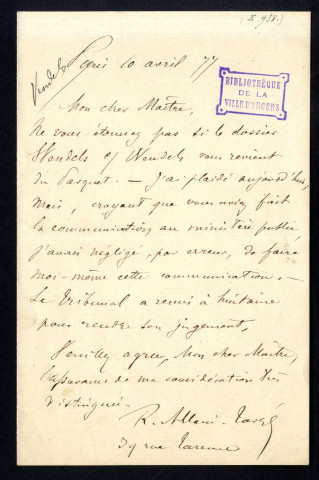 (E. 938.)
Paris 10 avril 77
BIBLIOTHÈQUE
DE LA
VILLE D'ANGERS
Mon cher Maître,
Ne vous étonnez pas si le dossier
Wendels vous revient
du Parquet. — J'ai plaidé aujourd'hui,
mais, croyant que vous aviez fait
la communication au ministère public,
j'avais négligé, par erreur, de faire
moi-même cette communication. —
Le Tribunal a remis à huitaine
pour rendre son jugement.
Veuillez agréer, Mon cher Maître,
l'assurance de ma considération très
distinguée.
R. Allain-Targé
39 rue Varenne